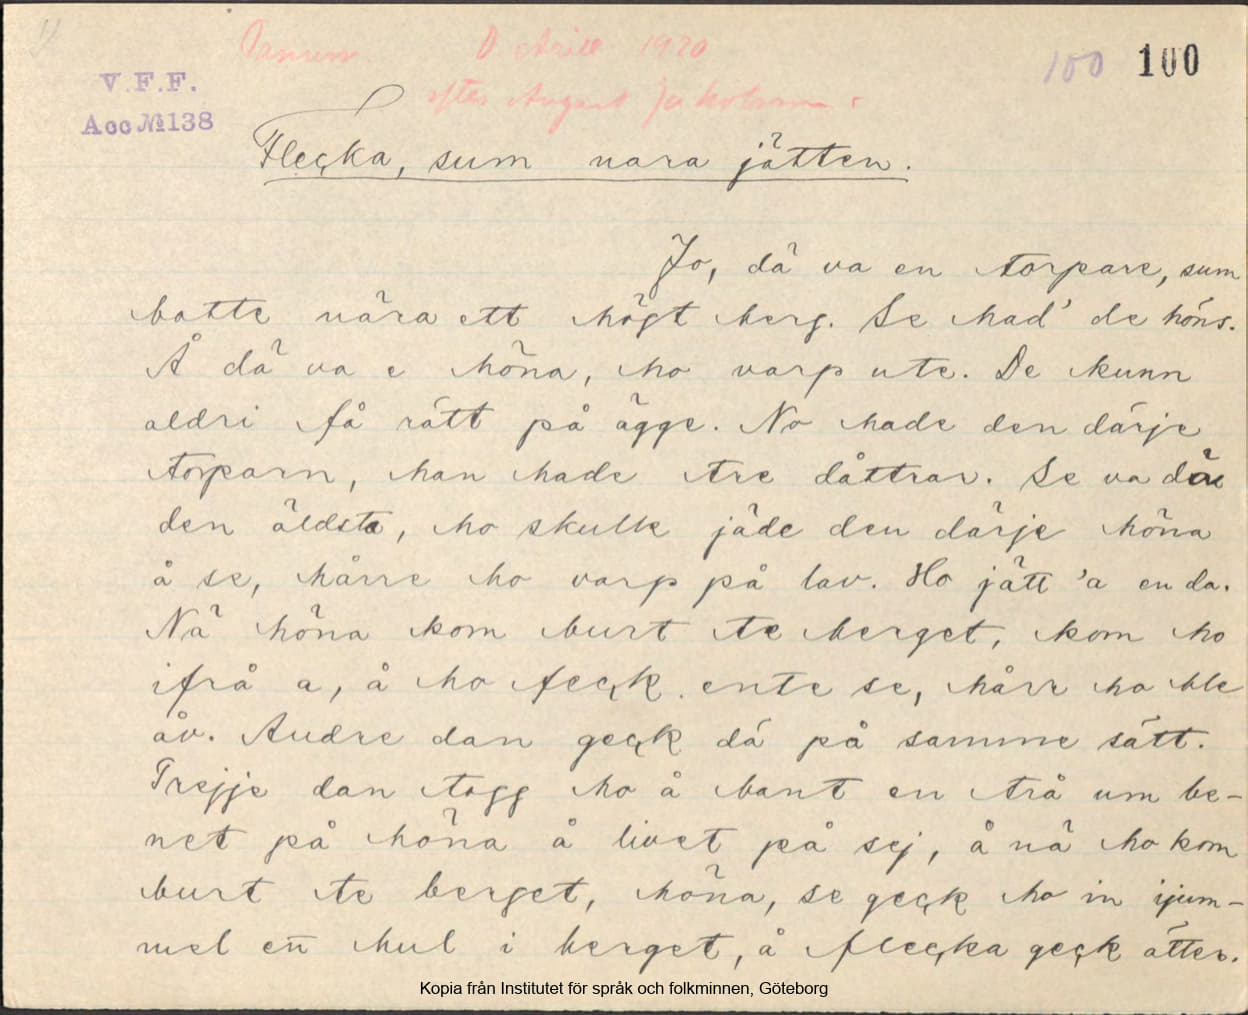 Tanum. D April 1920
100 100
V.F.F.
efter August Jakobsson
Acc №138
Flecka, sum nara jätten.
Jo, dä va en torpare, sum
botte nära ett högt berg. Se had' de höns.
Å dä va e höna, ho varp ute. De kunn
aldri få rätt på ägge. No hade den därje
torparn, han hade tre dåttrar. Se va dän
den äldsta, ho skulle jäde den därje höna
å se, hårre ho varp på lav. Ho jätt 'a en da.
Nä höna kom burt te berget, kom ho
ifrå a, å ho feck ente se, hårr ho ble
åv. Andre dan geck dä på samme sätt.
Trejje dan togg ho å bant en trå um be-
net på höna å livet på sej, å nä ho kom
burt te berget, höna, se geck ho in ijum-
mel en hul i berget, å flecka geck ätter.
Kopia från Institutet för språk och folkminnen, Göteborg